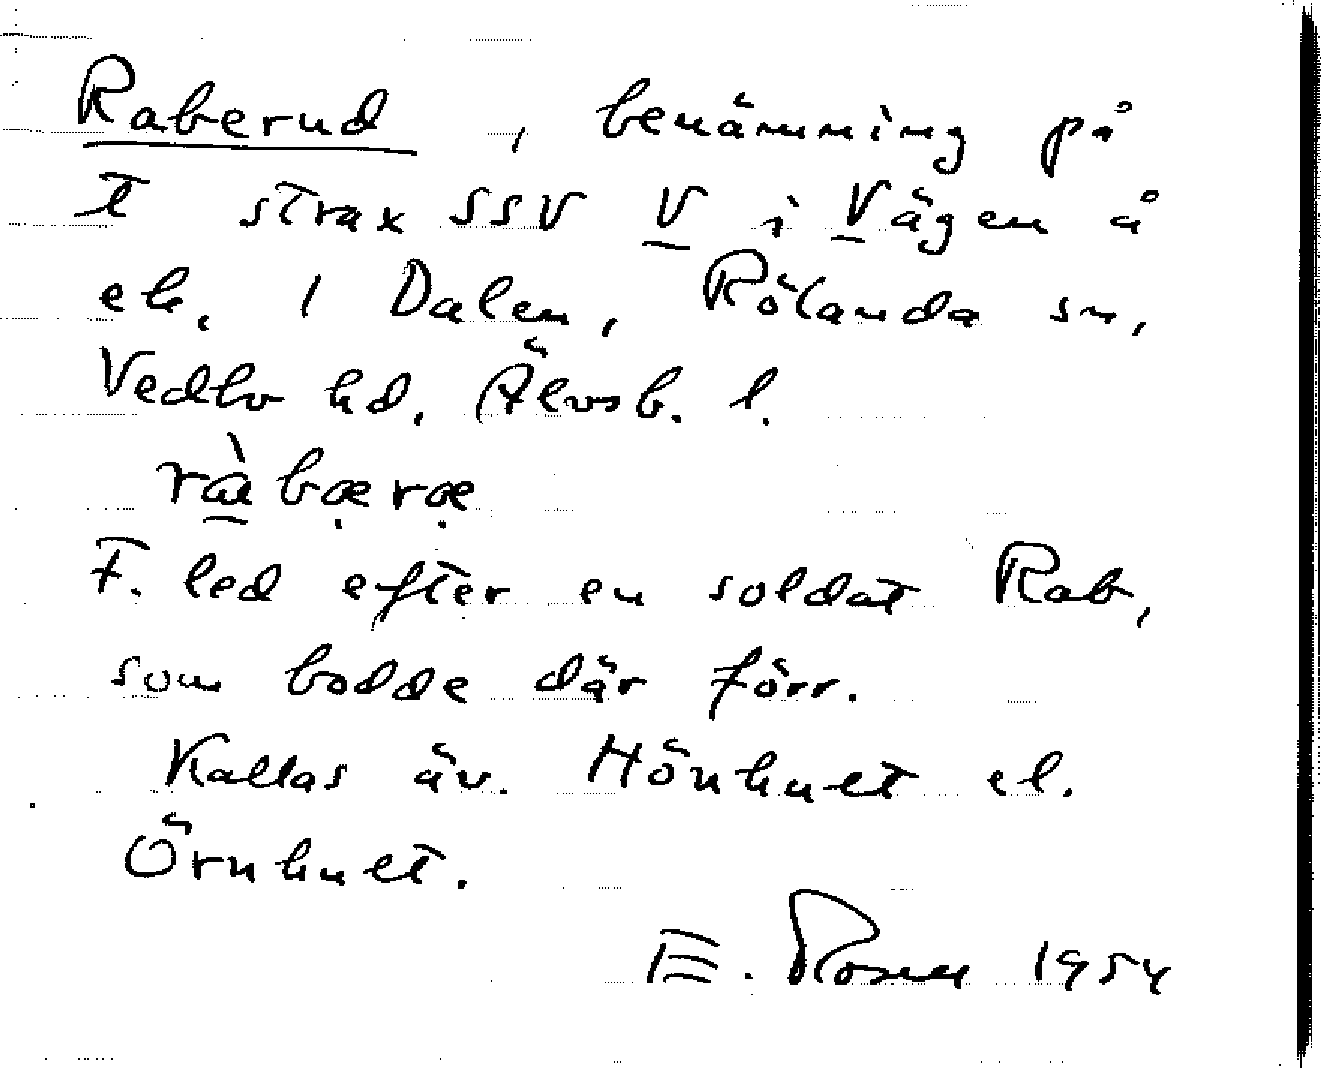 Raberud, benämning på
t strax SSV V i Vägen å
ek. 1 Dalen, Rölanda sn,
Vedbo hd. Älvsb. l.
ràbæræ
F. led efter en soldat Rab,
som bodde där förr.
Kallas äv. Hönhuet el.
Örnhuet.
E. Rosen 1954